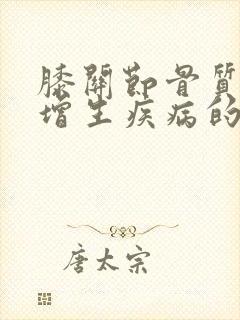 膝關節骨質
增生疾病的
唐太宗